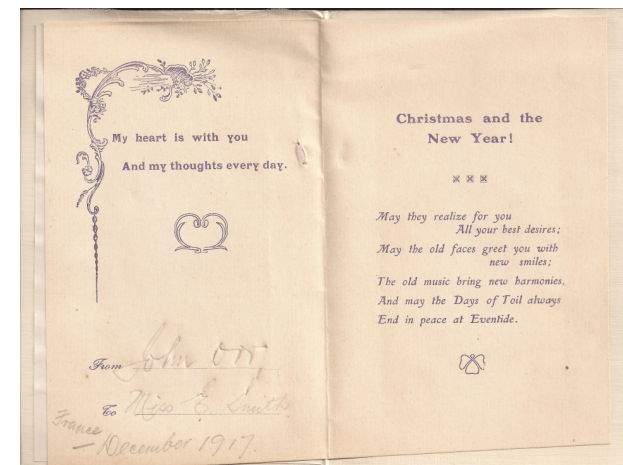 My heart is with you
And my thoughts every day.
From John Orr,
To Miss E. Smith
France
— December 1917.
Christmas and the
New Year!
May they realize for you
All your best desires;
May the old faces greet you with
new smiles;
The old music bring new harmonies,
And may the Days of Toil always
End in peace at Eventide.